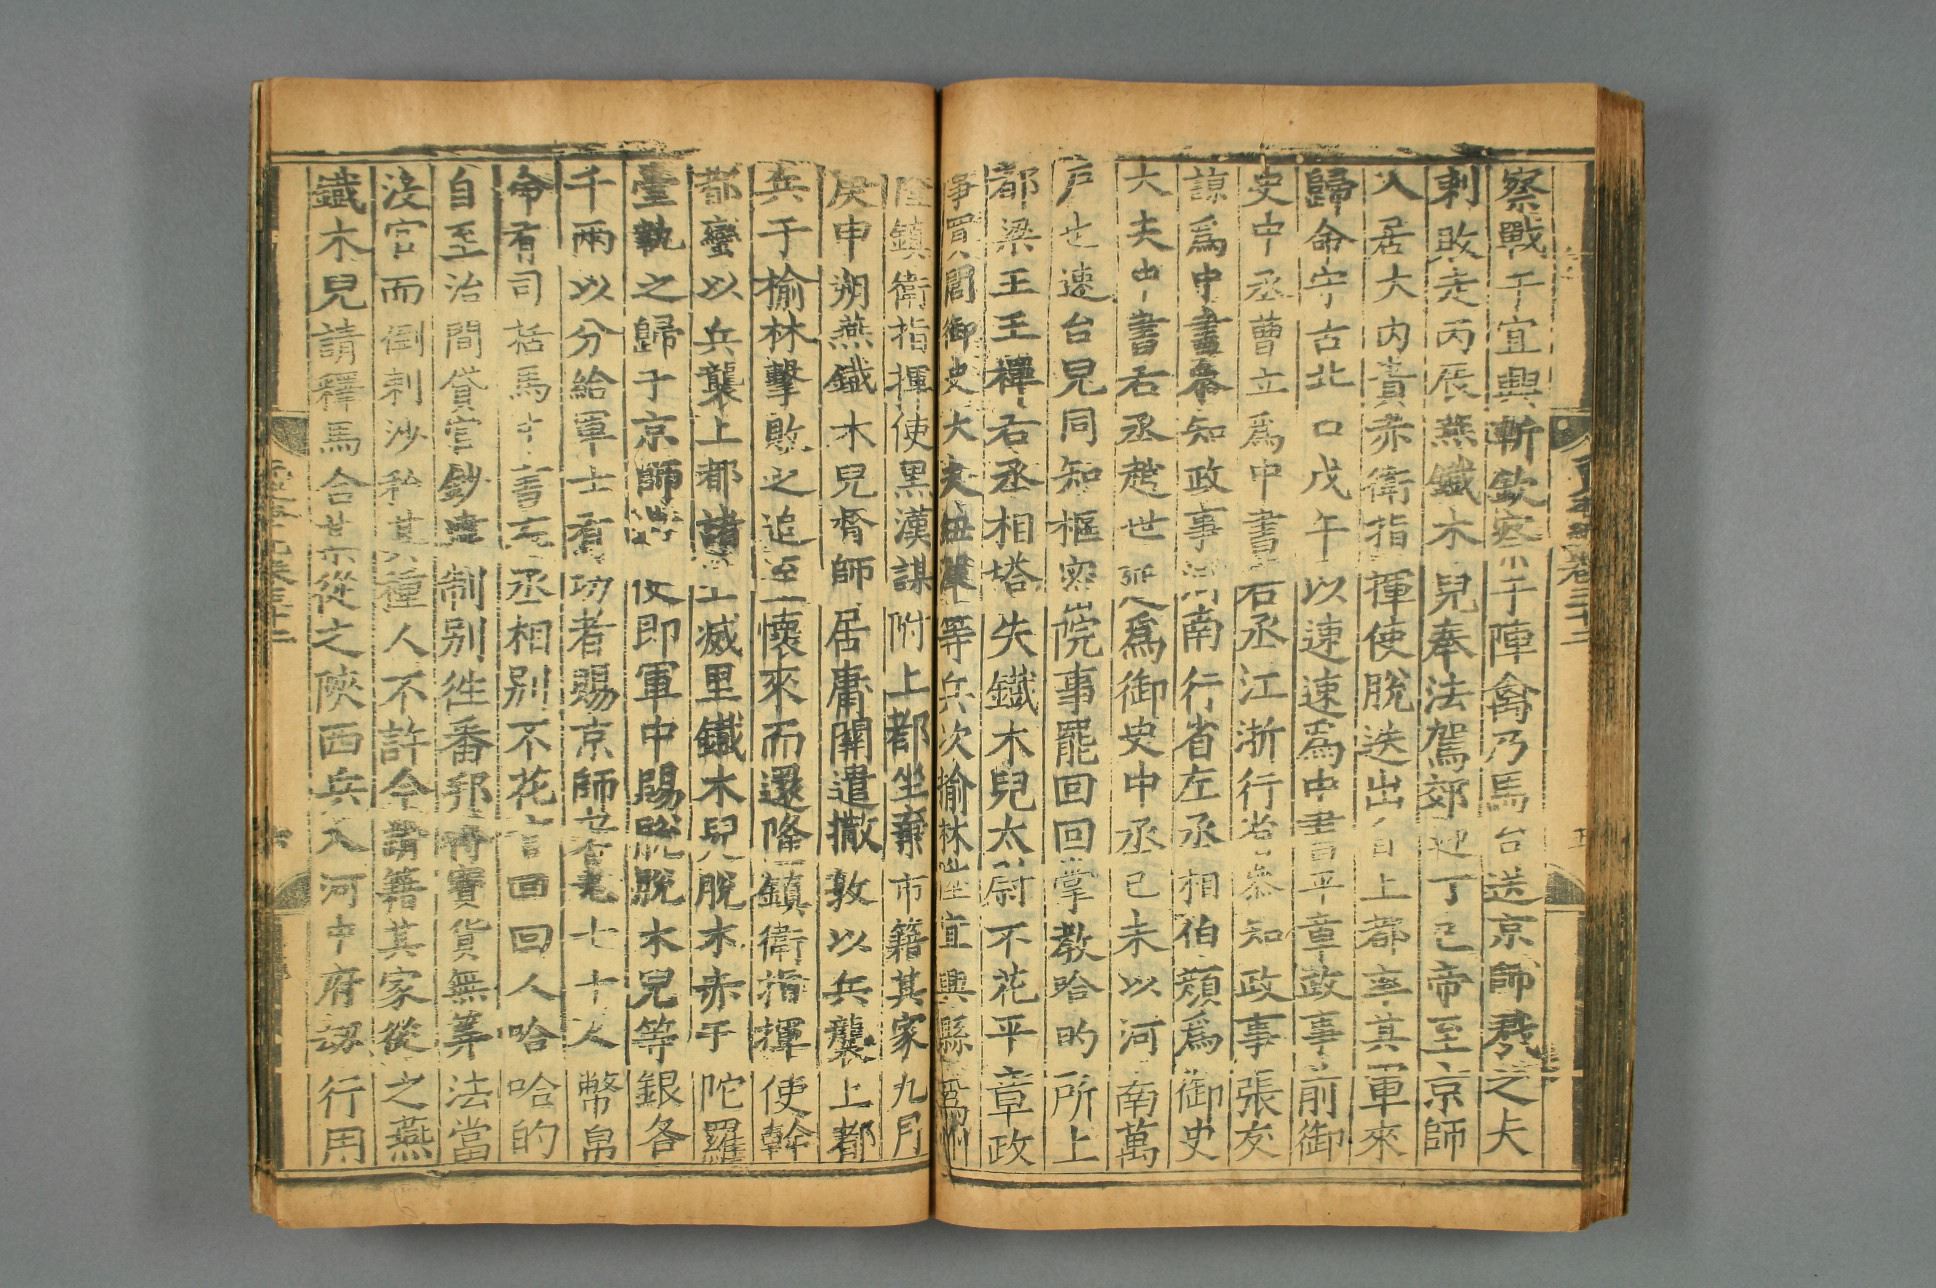 察戰于宜興斬欽察于陣禽乃馬台送京師戮之大
剌敗走丙辰燕鐵木兒奉法駕郊迎丁巳帝至京師
入居大內貴赤衛指揮使脫迭出自上都率其軍來
歸命守古北口戊午以速速爲中書平章政事前御
史中丞曹立爲中書右丞江浙行省參知政事張友
諒爲中書參知政事河南行省左丞相伯顏爲御史
大夫中書右丞趙世延爲御史中丞己未以河南萬
戶也速台兒同知樞密院事罷回回掌教哈的所上
都梁王王禪右丞相塔失鐵木兒太尉不花平章政
事買閭御史大夫紐澤等兵次榆林陞宜興縣爲州
隆鎮衛指揮使黑漢謀附上都坐棄市籍其家九月
庚申朔燕鐵木兒督師居庸關遣撒敦以兵襲上都
兵于榆林擊敗之追至懷來而還隆鎮衛指揮使斡
都蠻以兵襲上都諸王滅里鐵木兒脫木赤于陀羅
臺執之歸于京師遣使即軍中賜脫脫木兒等銀各
千兩以分給軍士有功者賜京師耆老七十人幣帛
命有司括馬中書左丞相別不花言回回人哈哈的
自至治間貸官鈔違制別往番邦得寶貨無筭法當
沒官而倒剌沙私其種人不許今請籍其家從之燕
鐵木兒請釋馬合某從之陝西兵入河中府劫行用